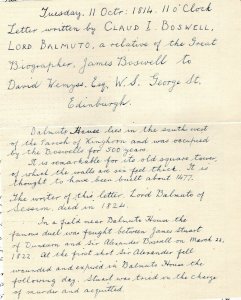 Tuesday, 11 Octr. 1814. 11 o'Clock
Letter written by CLAUD I. BOSWELL,
LORD BALMUTO, a relative of the Great
Biographer, James Boswell to
David Wemyss, Esq, W.S. George St,
Edinburgh.
Balmuto House lies in the south west
of the Parish of Kinghorn and was occupied
by the Boswells for 500 years
It is remarkable for its old square tower,
of which the walls are six feet thick. It is
thought to have been built about 1477.
The writer of this letter, Lord Balmuto of
Session, died in 1824.
In a field near Balmuto House the
famous duel was fought between James Stuart
of Dunearn and Sir Alexander Boswell on March 26,
1822. At the first shot Sir Alexander fell
wounded and expired in Balmuto House the
following day. Stuart was tried on the charge
of murder and acquitted